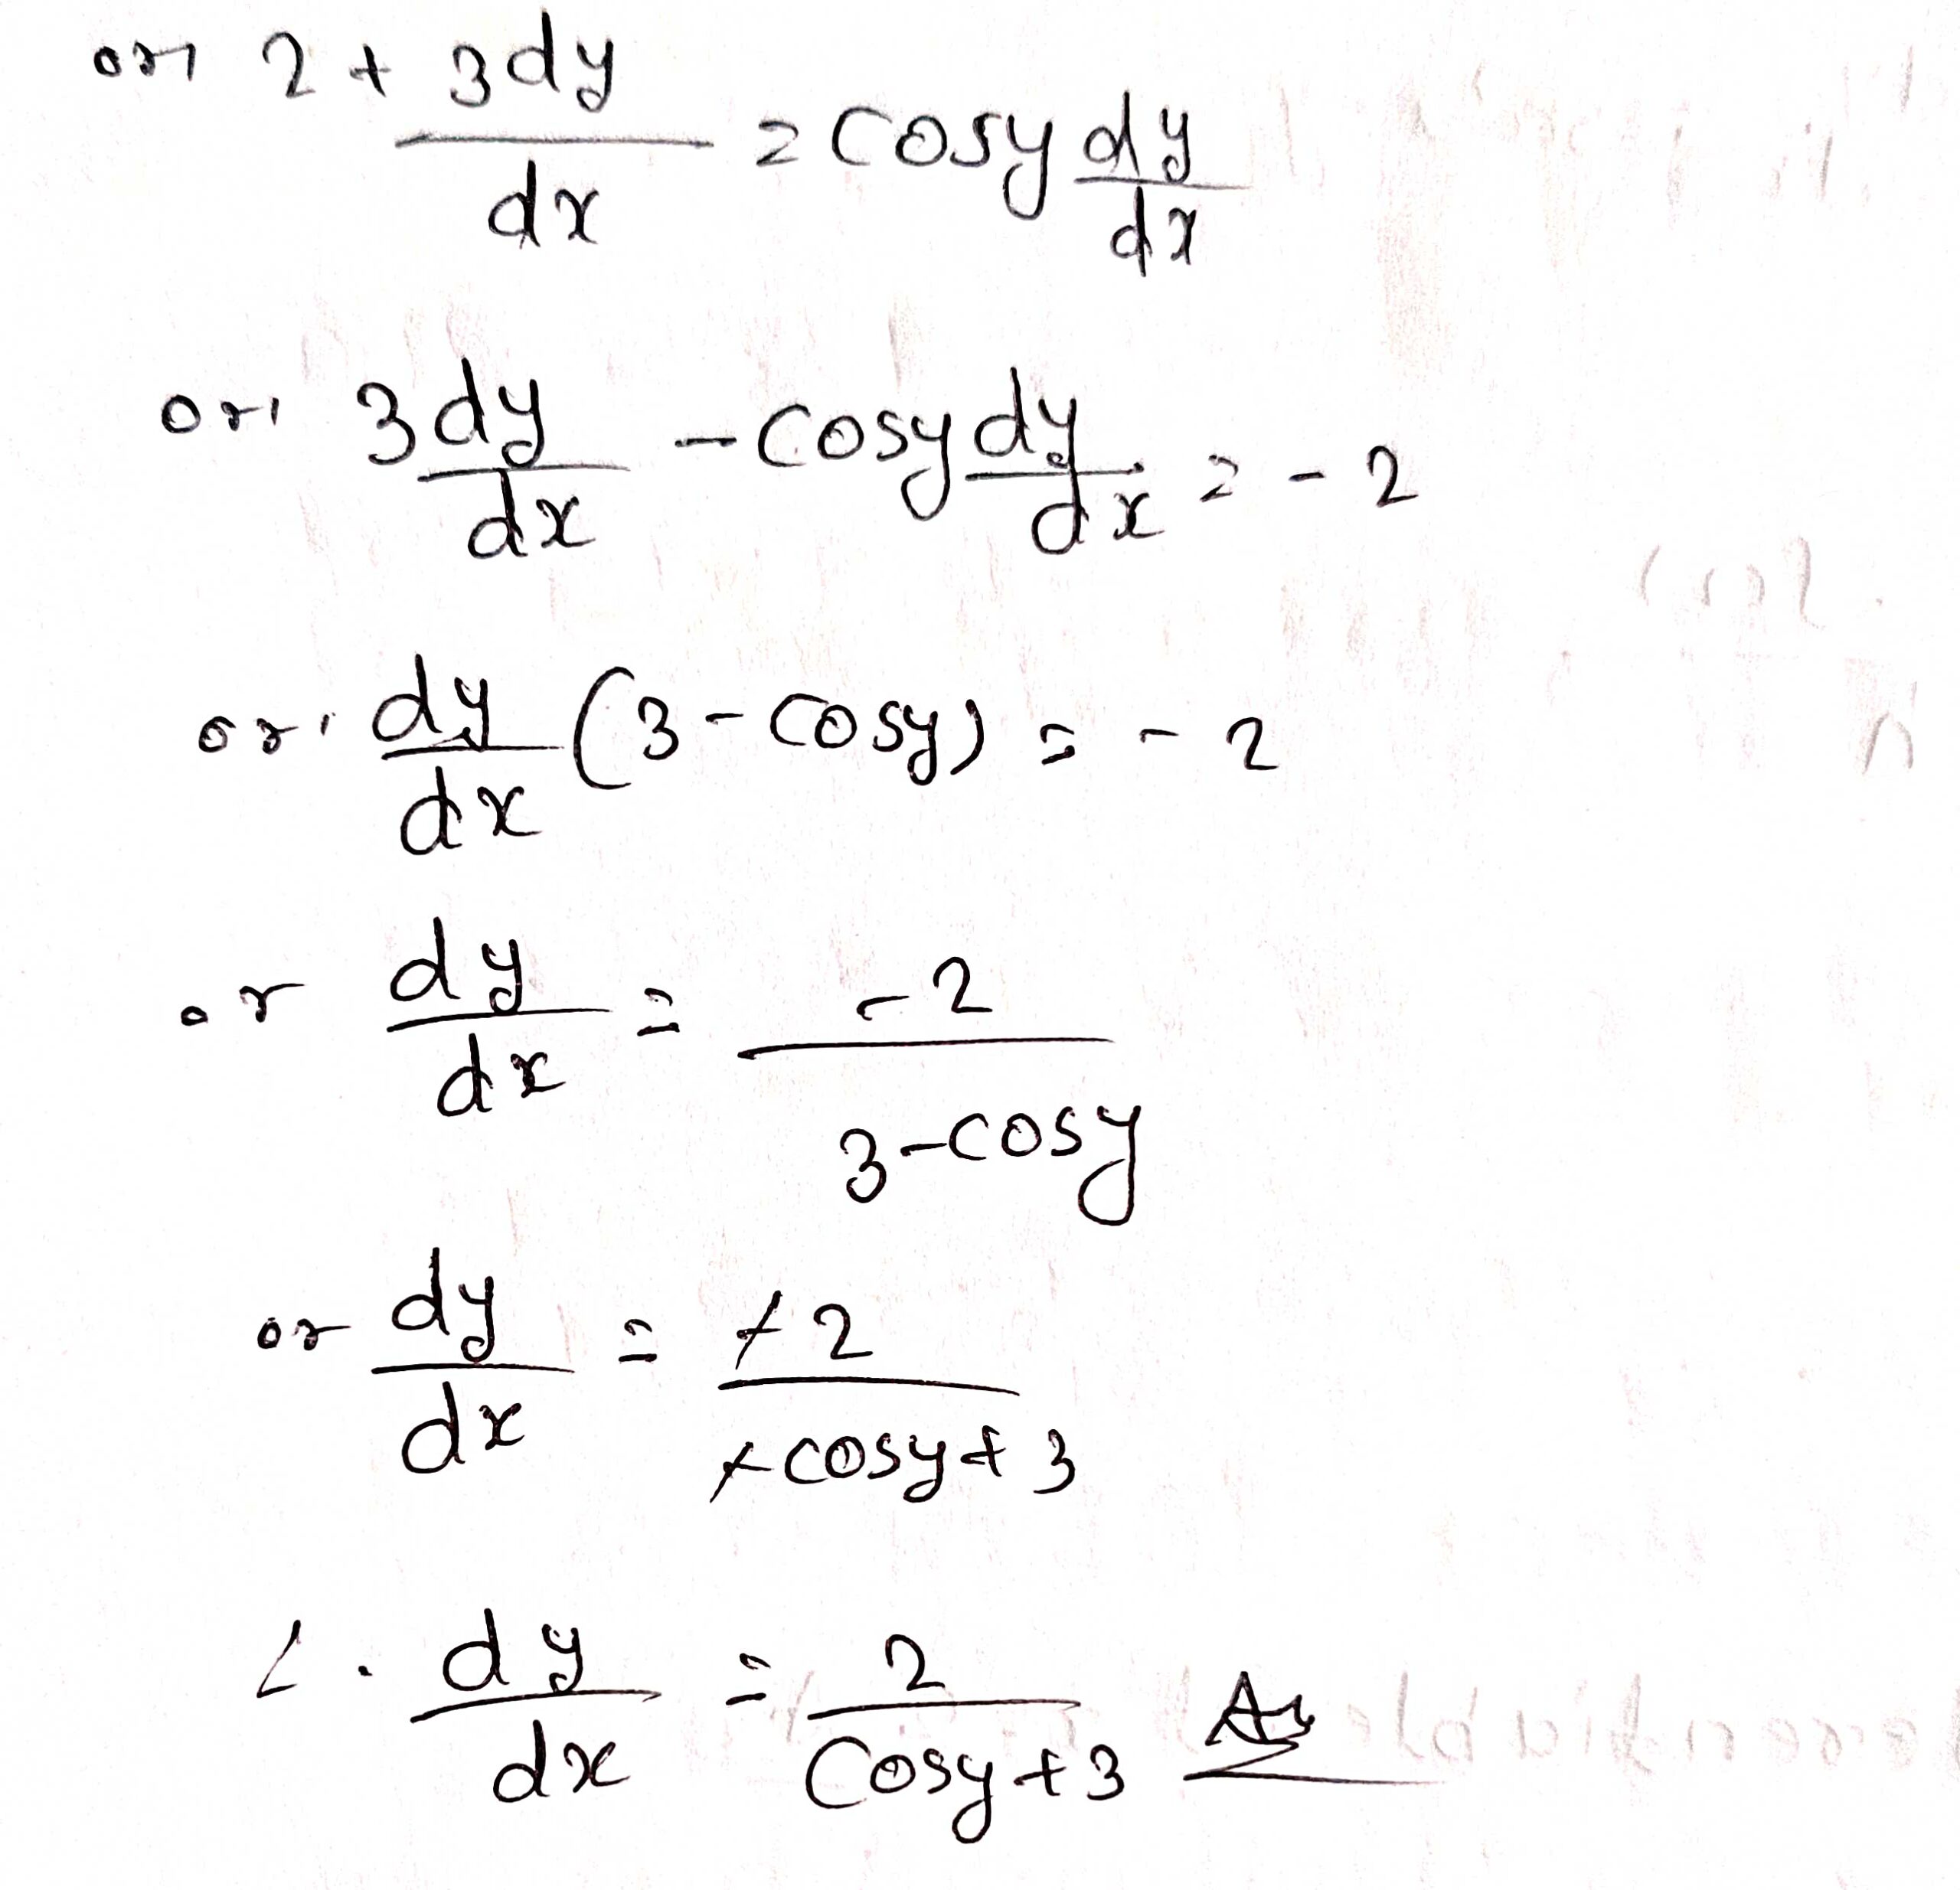 or 2 + 3dy/dx = cosy dy/dx
or 3 dy/dx - cosy dy/dx = - 2
or dy/dx (3 - cosy) = - 2
or dy/dx = -2/3-cosy
or dy/dx = -2/-cosy+3
∴ dy/dx = 2/cosy+3 Ans